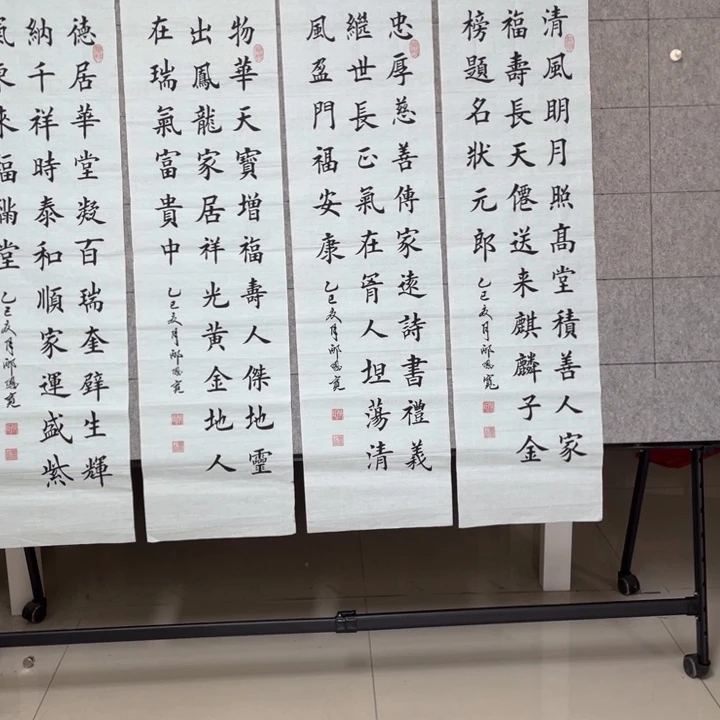 清風明月照高堂積善人家
福壽長天僊送来麒麟子金
榜題名狀元郎
乙巳夏月
忠厚慈善傳家遠詩書禮義
繼世長正氣在胥人坦蕩清
風盈門福安康
乙巳夏月
物華天寶增福壽人傑地靈
出鳳龍家居祥光黃金地人
在瑞氣富貴中
乙巳夏月
德居華堂凝百瑞奎壁生輝
納千祥時泰和順家運盛紫
氣東来福滿堂
乙巳夏月